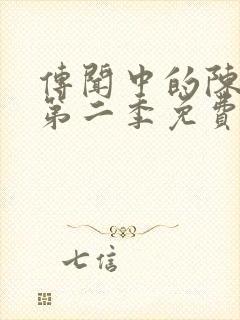 傳聞中的陳
第二季免費
七信